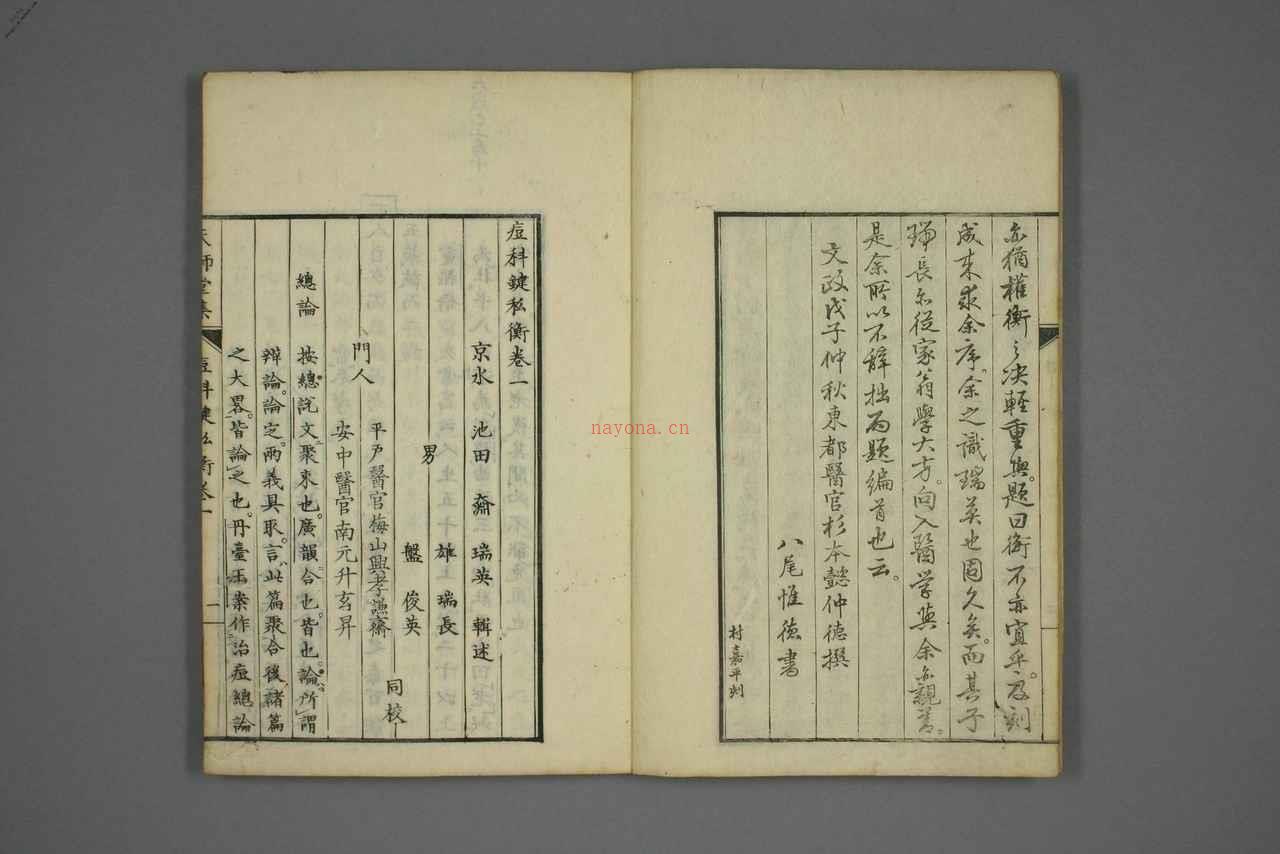 亦猶權衡之決輕重與題曰衡不亦宜乎及刻
成來求余序余之識瑞英也固久矣而其子
瑞長亦從家翁學大方向入醫学與余亦親善
是余所以不辞拙而題编首也云
文政戊子仲秋東都醫官杉本懿仲德撰
八尾惟德書
村嘉平刻
痘科鍵私衡卷一
京水 池田 奫 瑞英 輯述
男 雄 瑞長
盤 俊英
同校
平戶醫官梅山興孝
門人
安中醫官南元升玄昇
總論 按總說文聚束也廣韻合也皆也論所謂
辯論論定兩義具取言此篇聚合後諸篇
之大畧皆論之也丹臺玉案作治痘總論
痘科鍵私衡卷一
一
nayona.cn